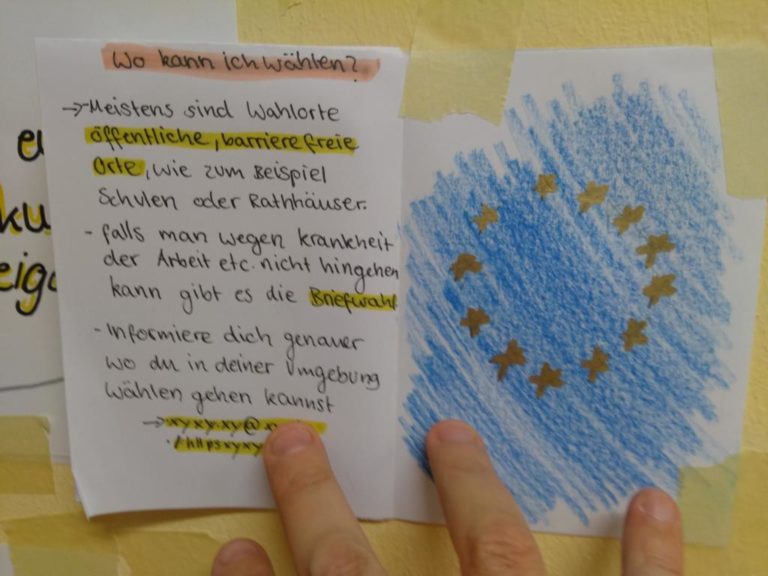 Wo kann ich wählen?
→ Meistens sind Wahlorte
öffentliche, barrierefreie
Orte, wie zum Beispiel
Schulen oder Rathhäuser.
- falls man wegen krankheit
der Arbeit etc. nicht hingehen
kann gibt es die Briefwahl
- Informiere dich genauer
wo du in deiner Umgebung
wählen gehen kannst
→ xyxy.xy@
ku